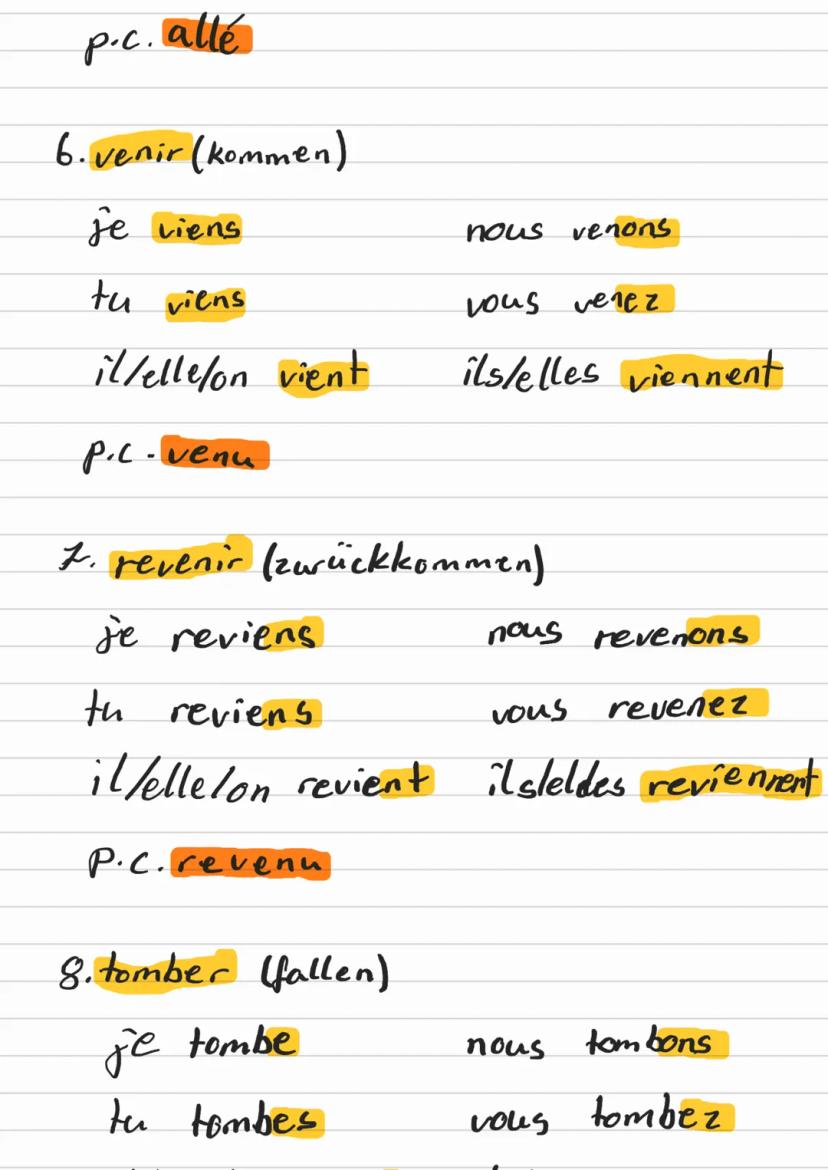 p.c. allé
6. venir (kommen)
je viens nous venons
tu viens vous venez
il/elle/on vient ils/elles viennent
p.c. venu
7. revenir (zurückkommen)
je reviens nous revenons
tu reviens vous revenez
il/elle/on revient ils/eldes reviennent
P.C. revenu
8. tomber (fallen)
je tombe nous tombons
tu tombes vous tombez